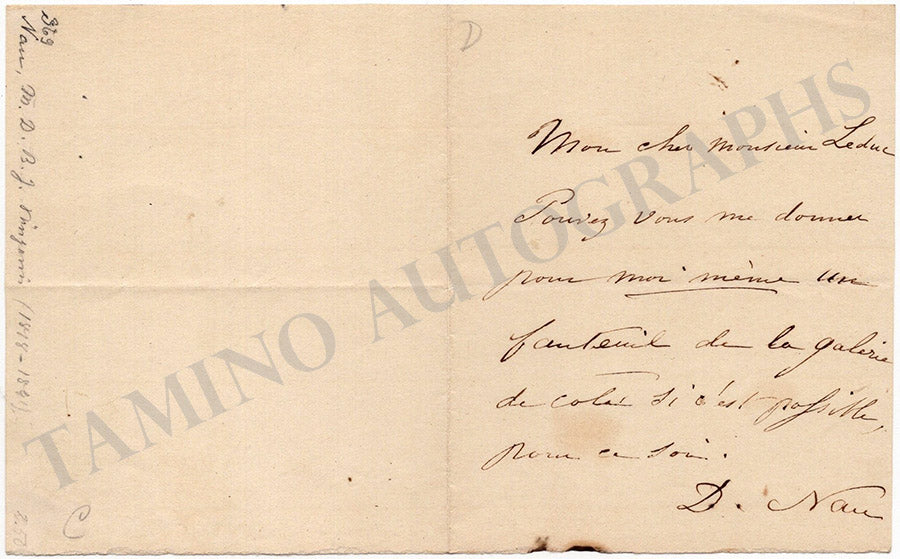 Mon cher monsieur Leduc
Pouvez vous me donner
pour moi même un
fauteuil de la galerie
de coté si c'est possible,
pour ce soir.
D. Nau
Nau, M. D. B. J.
2.50
D
TAMINO AUTOGRAPHS